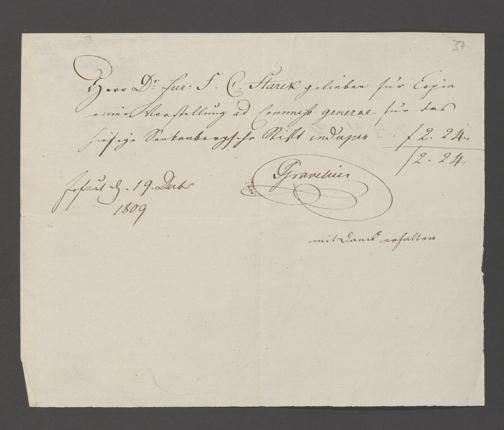 37
Herr Dr. Jur: S. C. Starck gelieben für Copia
einer Vorstellung ad Commiss general für das
hiesige Senkenbergische Stift in duplo . f 2. 24.
f 2. 24
Frfurt d. 19. Decbr
1809
Gravelius
mit Danck erhalten